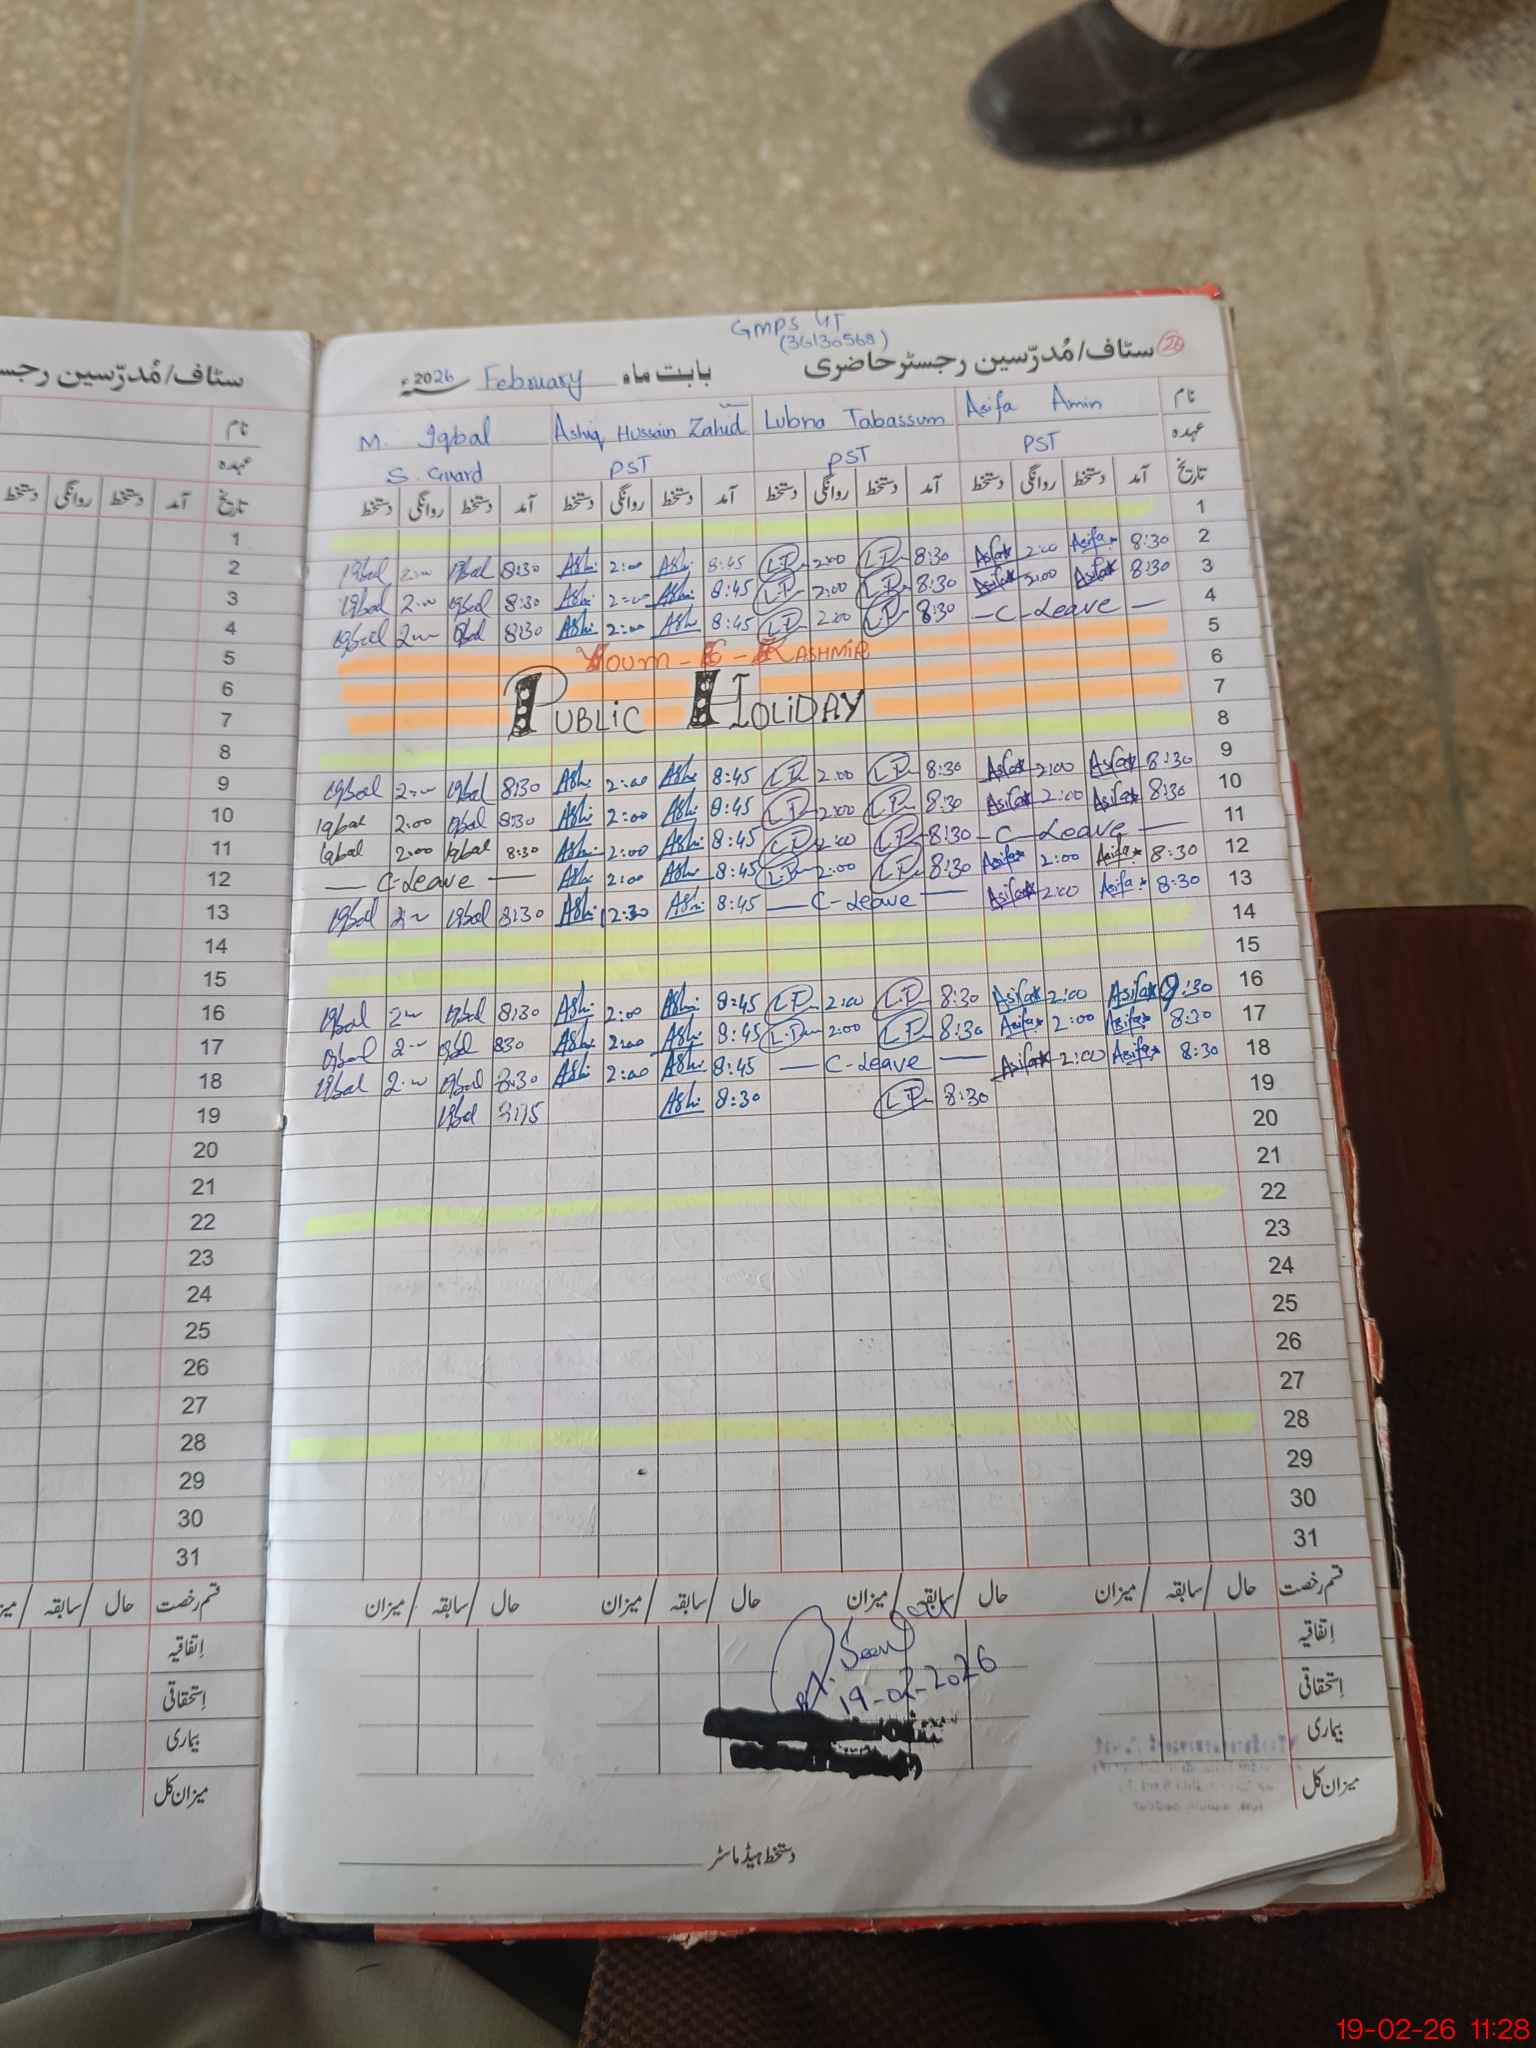 GMPS 4T
(36130568)
سٹاف/مُدرّسین رجسٹر حاضری 26
بابت ماہ February 2026ء
نام Asifa Amin Lubna Tabassum Ashiq Hussain Zahid M. Iqbal
عہدہ PST PST PST S. Guard
تاریخ آمد دستخط روانگی دستخط آمد دستخط روانگی دستخط آمد دستخط روانگی دستخط آمد دستخط روانگی دستخط
1
2 8:30 Asifa 2:00 Asifa 8:30 2:00 8:45 Ashi 2:00 Ashi 8:30 Iqbal 2:00 Iqbal
3 8:30 Asifa 2:00 Asifa 8:30 2:00 8:45 Ashi 2:00 Ashi 8:30 Iqbal 2:00 Iqbal
4 — C-Leave — 8:30 2:00 8:45 Ashi 2:00 Ashi 8:30 Iqbal 2:00 Iqbal
5 Youm-E-Kashmir
6
7 Public Holiday
8
9 8:30 Asifa 2:00 Asifa 8:30 2:00 8:45 Ashi 2:00 Ashi 8:30 Iqbal 2:00 Iqbal
10 8:30 Asifa 2:00 Asifa 8:30 2:00 8:45 Ashi 2:00 Ashi 8:30 Iqbal 2:00 Iqbal
11 — C-Leave — 8:30 2:00 8:45 Ashi 2:00 Ashi 8:30 Iqbal 2:00 Iqbal
12 8:30 Asifa 2:00 Asifa 8:30 2:00 8:45 Ashi 2:00 Ashi — C-Leave —
13 8:30 Asifa 2:00 Asifa — C-Leave — 8:45 Ashi 12:30 Ashi 8:30 Iqbal 2:00 Iqbal
14
15
16 :30 Asifa 2:00 Asifa 8:30 2:00 8:45 Ashi 2:00 Ashi 8:30 Iqbal 2:00 Iqbal
17 8:30 Asifa 2:00 Asifa 8:30 2:00 8:45 Ashi 2:00 Ashi 830 Iqbal 2:00 Iqbal
18 8:30 Asifa 2:00 Asifa — C-Leave — 8:45 Ashi 2:00 Ashi 8:30 Iqbal 2:00 Iqbal
19 8:30 8:30 Ashi Iqbal
20
21
22
23
24
25
26
27
28
29
30
31
قسم رخصت حال / سابقہ / میزان حال / سابقہ / میزان حال / سابقہ / میزان حال / سابقہ / میزان
اِتفاقیہ
اِستحقاقی
بیماری
میزان کل
Seen
19-02-2026
دستخط ہیڈ ماسٹر
سٹاف/مُدرّسین رجسٹر
نام
عہدہ
تاریخ آمد دستخط روانگی دستخط
1
2
3
4
5
6
7
8
9
10
11
12
13
14
15
16
17
18
19
20
21
22
23
24
25
26
27
28
29
30
31
قسم رخصت حال / سابقہ /
اِتفاقیہ
اِستحقاقی
بیماری
میزان کل
19-02-26 11:28